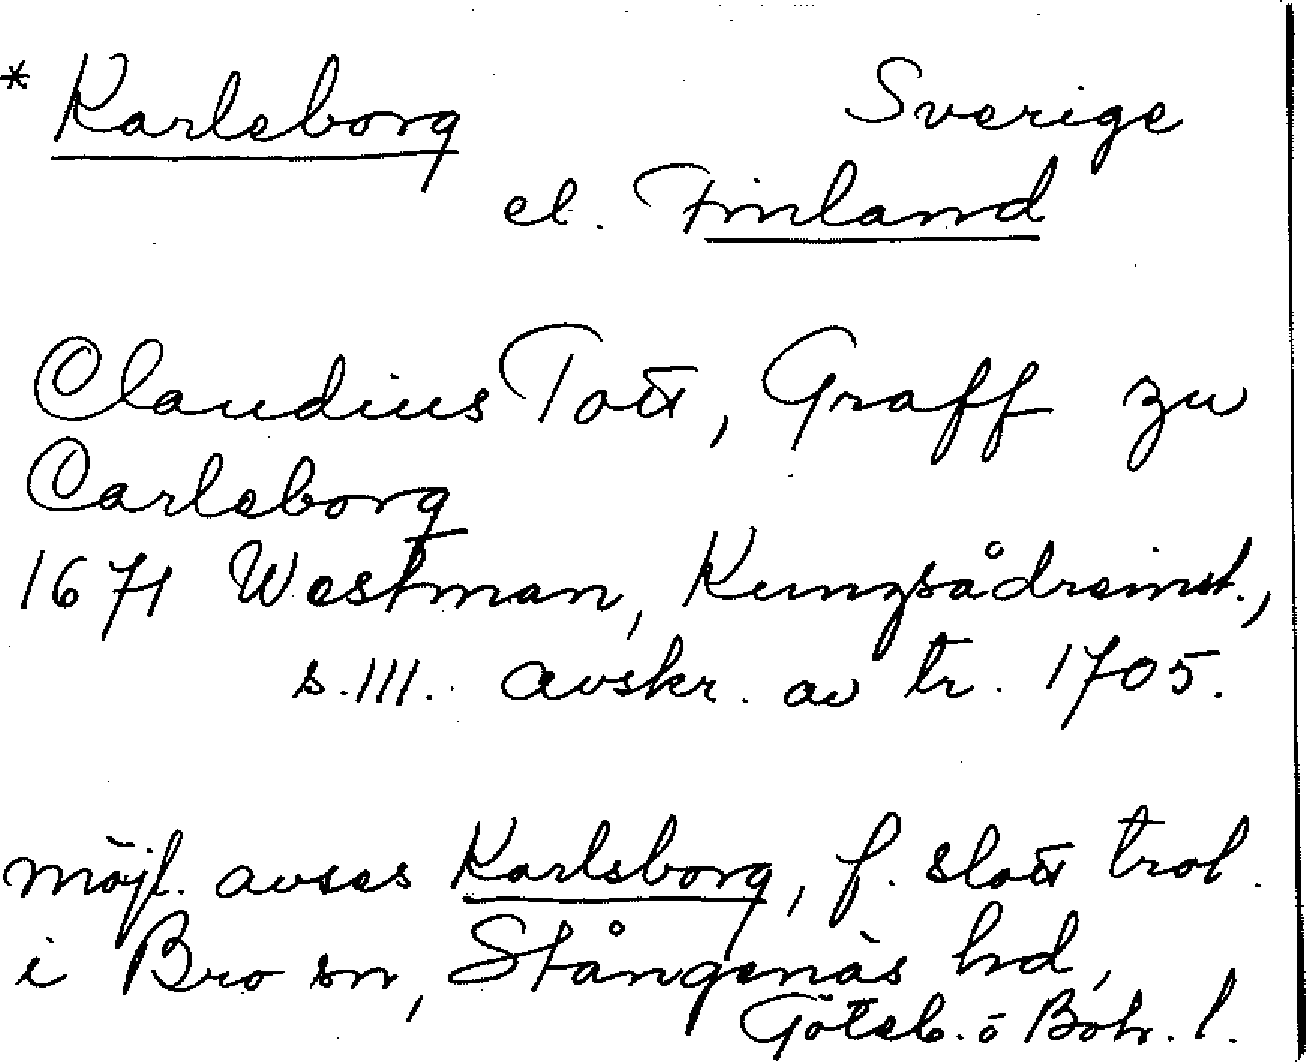 * Karlsborg Sverige
el. Finland
Claudius Tott, Graff zu
Carlsborg
1671 Westman, Kungsådreinst.,
s. 111. avskr. av tr. 1705.
möjl. avses Karlsborg, f. slott trol.
i Bro sn, Stångenäs hd,
Göteb. o Boh. l.